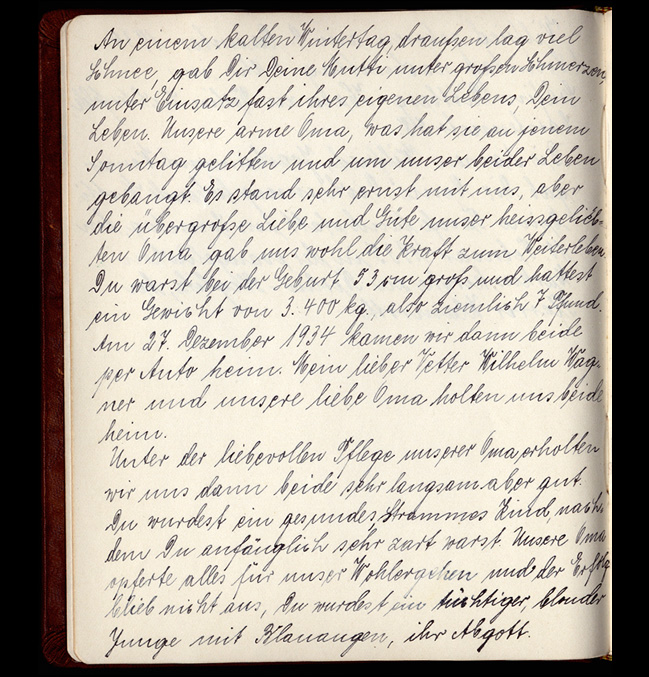 An einem kalten Wintertag, draußen lag viel
Schnee, gab Dir Deine Mutti unter großen Schmerzen,
unter Einsatz fast ihres eigenen Lebens Dein
Leben. Unsere arme Oma, was hat sie an jenem
Sonntag gelitten und um unser beider Leben
gebangt. Es stand sehr ernst mit uns, aber
die übergroße Liebe und Güte unser heissgelieb-
ten Oma gab uns wohl die Kraft zum Weiterleben.
Du warst bei der Geburt 53 cm groß und hattest
ein Gewicht von 3.400 kg, also ziemlich 7 Pfund.
Am 27. Dezember 1934 kamen wir dann beide
per Auto heim. Mein lieber Vetter Wilhelm Wag-
ner und unsere liebe Oma holten uns beide
heim.
Unter der liebevollen Pflege unserer Oma erholten
wir uns dann beide sehr langsam aber gut.
Du wurdest ein gesundes, strammes Kind, nach-
dem Du anfänglich sehr zart warst. Unsere Oma
opferte alles für unser Wohlergehen und der Erfolg
blieb nicht aus, Du wurdest ein tüchtiger, blonder
Junge mit Blauaugen, ihr Abgott.